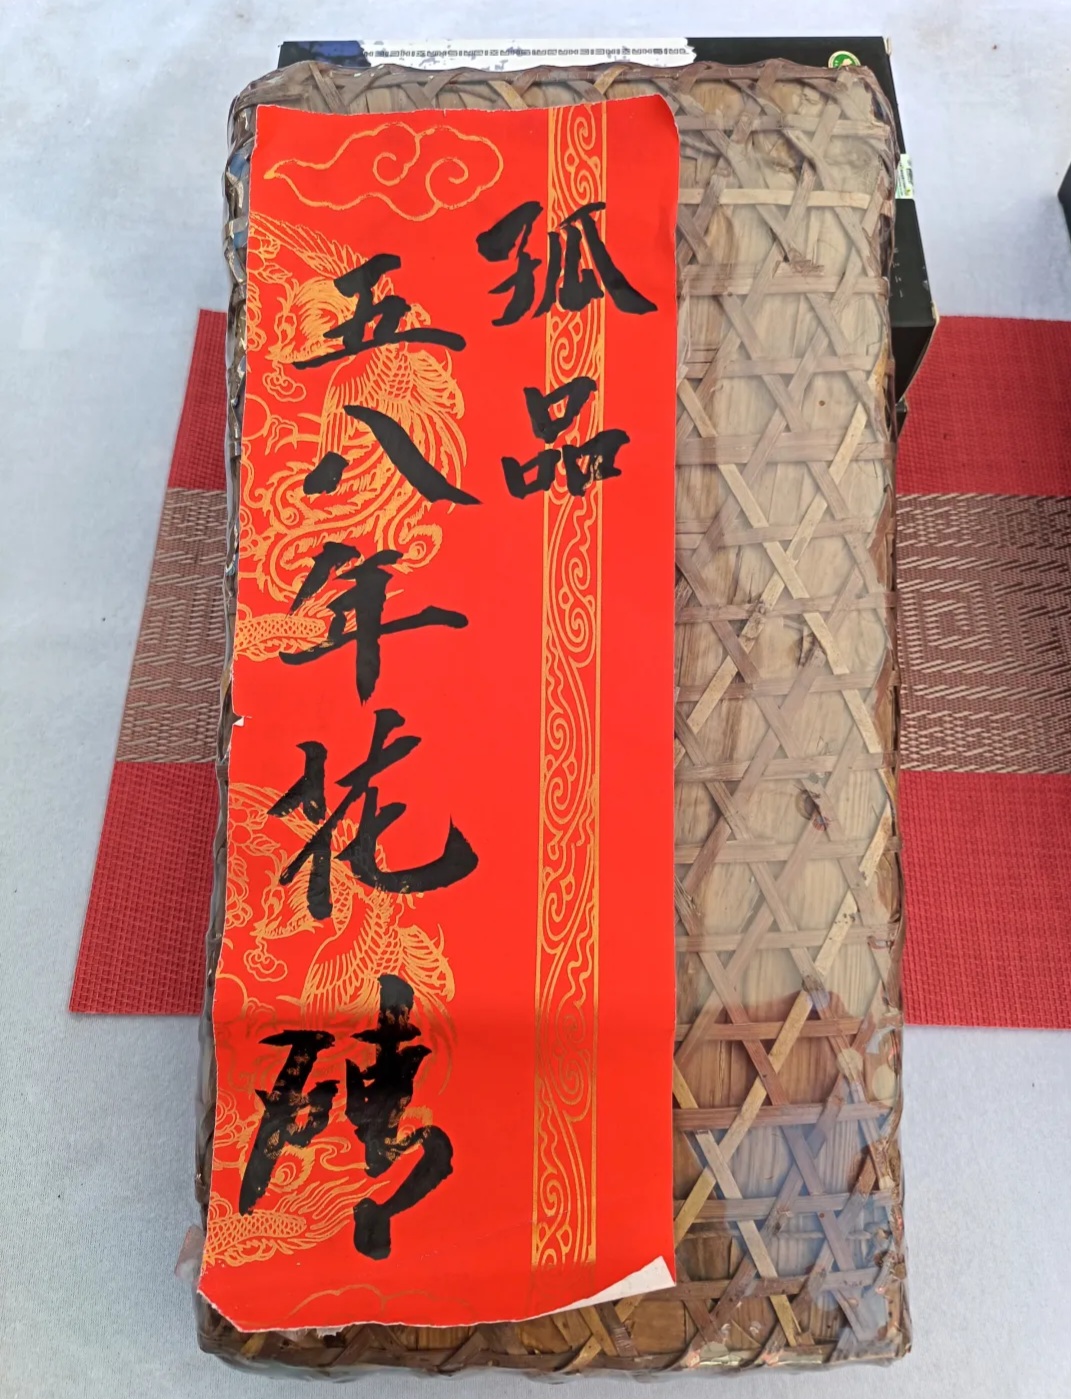 孤品
五八年花磚